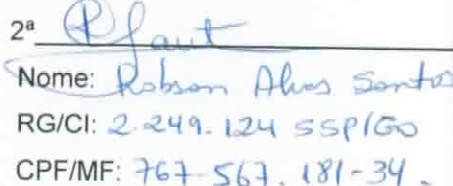 2ª
Nome: Robson Alves Santos
RG/CI: 2.249.124 SSP/GO
CPF/MF: 767.567.181-34.